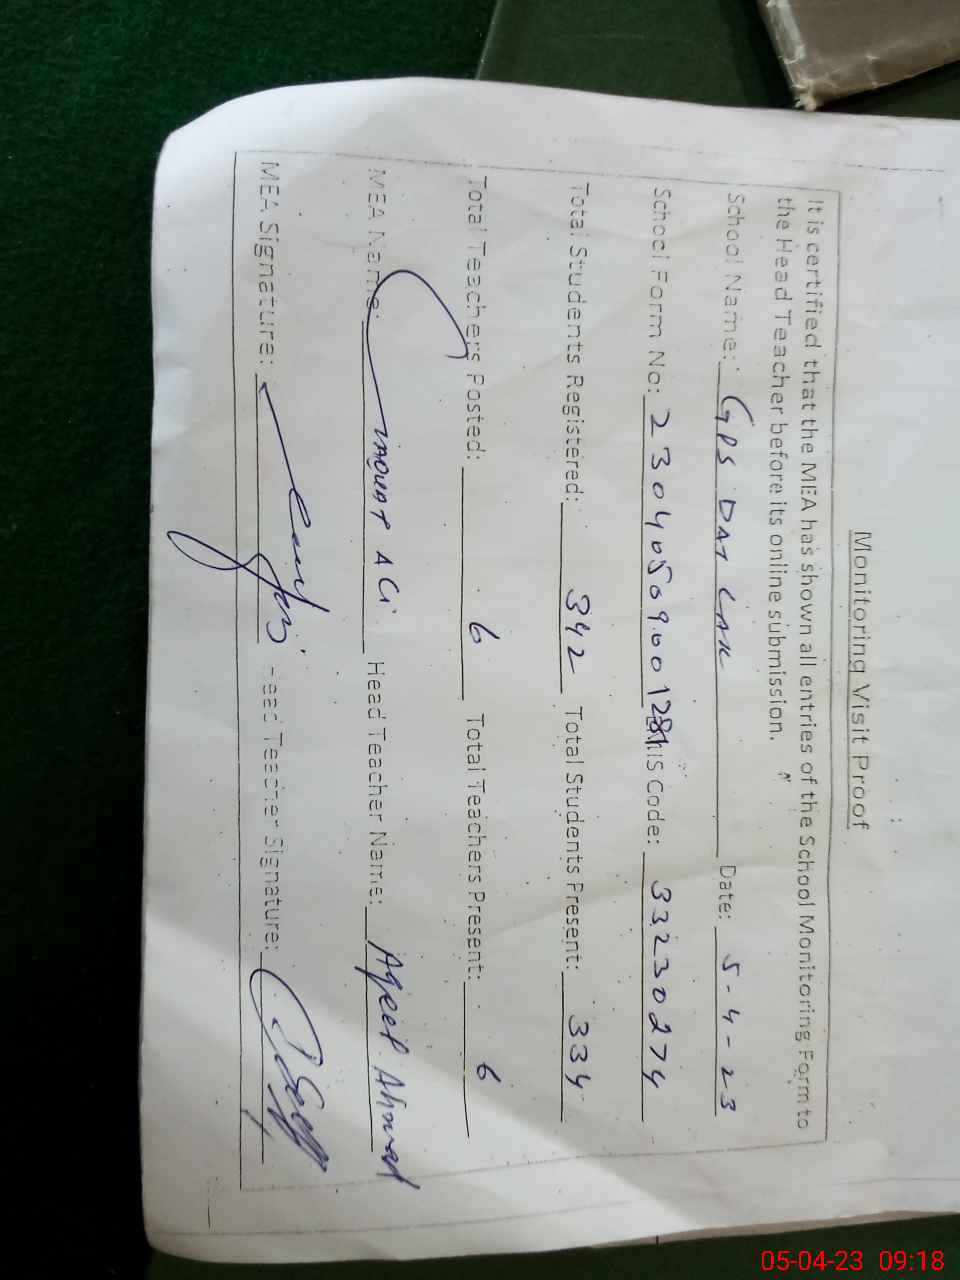 Monitoring Visit Proof
It is certified that the MEA has shown all entries of the School Monitoring Form to
the Head Teacher before its online submission.
School Name: GPS DAT LAK Date: 5-4-23
School Form No: 2304050900128 Code: 33230274
Total Students Registered: 342 Total Students Present: 334
Total Teachers Posted: 6 Total Teachers Present: 6
MEA Name: ALi Head Teacher Name: Aqeel Ahmad
MEA Signature: Head Teacher Signature:
05-04-23 09:18